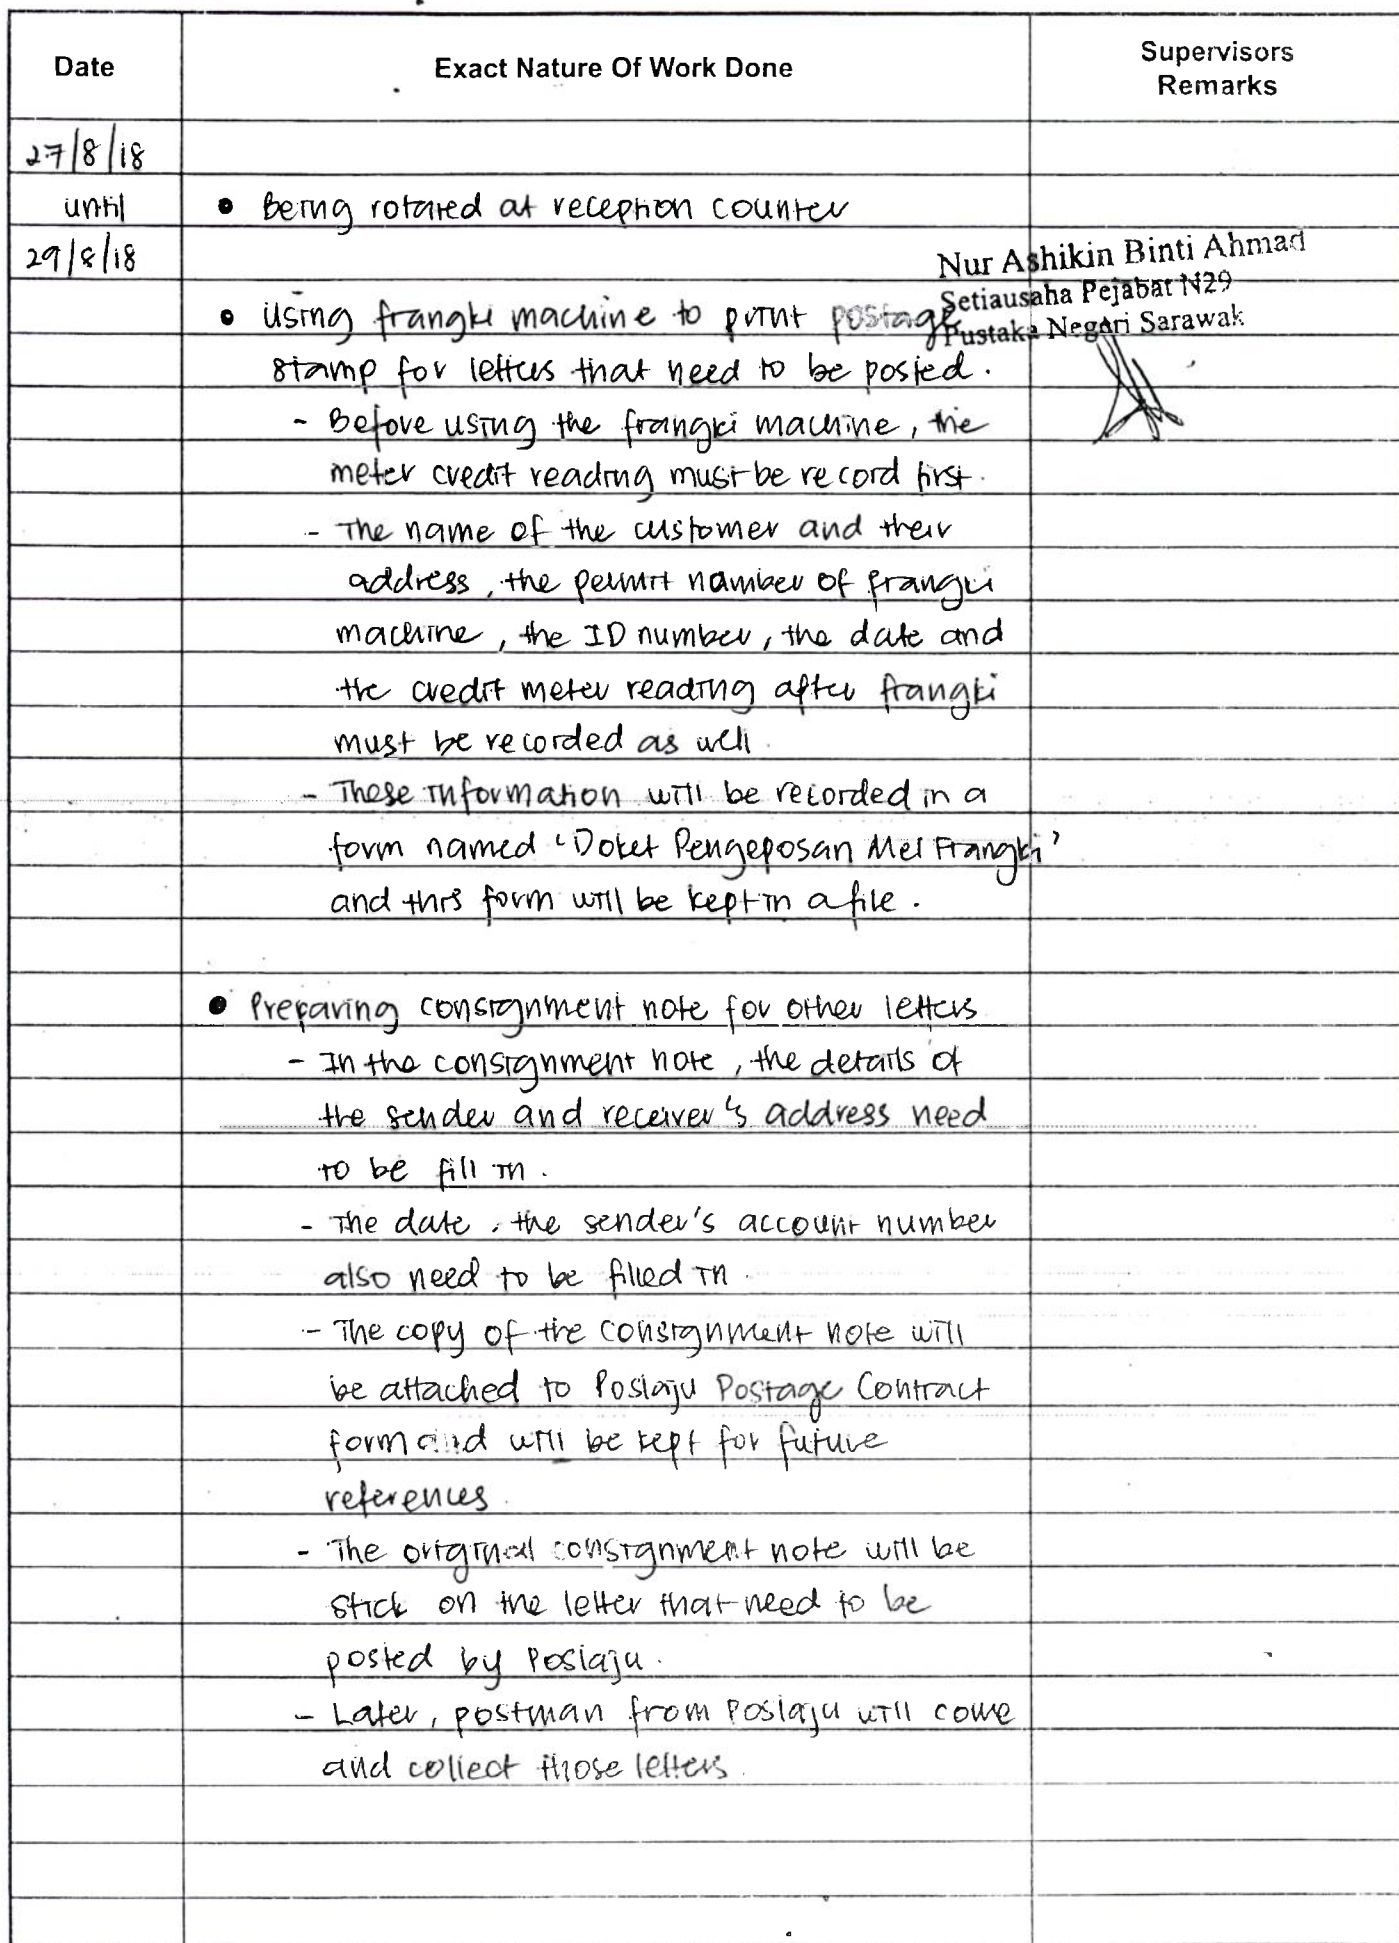 Date
Exact Nature Of Work Done
Supervisors
Remarks
27/8/18
until
29/8/18
• Being rotated at reception counter
Nur Ashikin Binti Ahmad
Setiausaha Pejabat N29
Pustaka Negeri Sarawak
• Using frangki machine to print postage
stamp for letters that need to be posted.
- Before using the frangki machine, the
meter credit reading must be record first.
- The name of the customer and their
address, the permit number of frangki
machine, the ID number, the date and
the credit meter reading after frangki
must be recorded as well.
- These information will be recorded in a
form named 'Doket Pengeposan Mel Frangki'
and this form will be kept in a file.
• Preparing consignment note for other letters
- In the consignment note, the details of
the sender and receiver's address need
to be fill in.
- The date, the sender's account number
also need to be filled in.
- The copy of the consignment note will
be attached to Poslaju Postage Contract
form and will be kept for future
references.
- The original consignment note will be
stick on the letter that need to be
posted by Poslaju.
- Later, postman from Poslaju will come
and collect those letters.